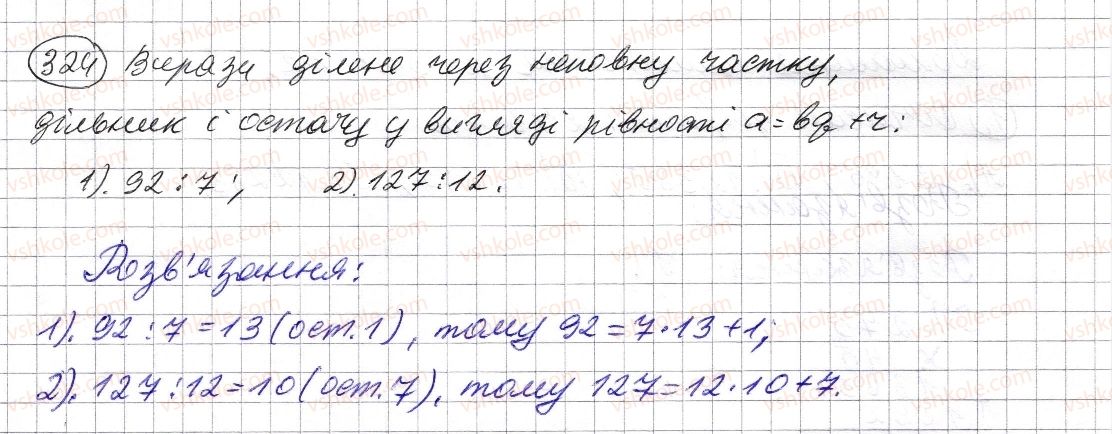 324 Вирази ділене через неповну частку,
дільник і остачу у вигляді рівності a = bq + r:
1). 92 : 7 ; 2). 127 : 12.
Розв'язання:
1). 92 : 7 = 13 (ост. 1), тому 92 = 7 · 13 + 1;
2). 127 : 12 = 10 (ост. 7), тому 127 = 12 · 10 + 7.
vshkole.com